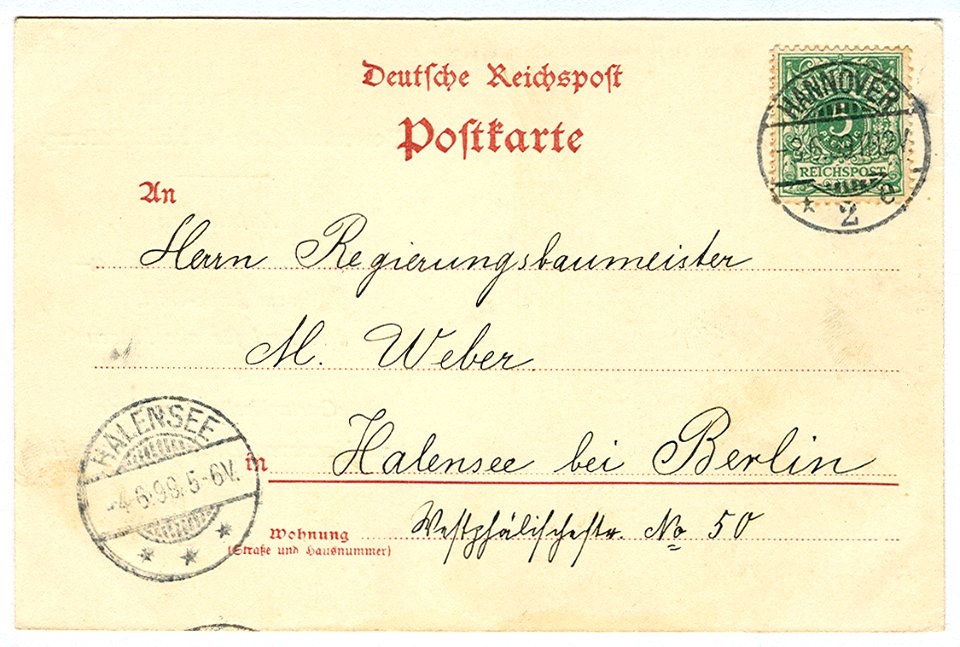 Deutsche Reichspost
Postkarte
HANNOVER
5
REICHSPOST
* 2 e
An
Herrn Regierungsbaumeister
M. Weber.
HALENSEE
-4.6.98. 5-6V.
* * *
in Halensee bei Berlin
Wohnung
(Straße und Hausnummer)
Westphälischestr. No 50